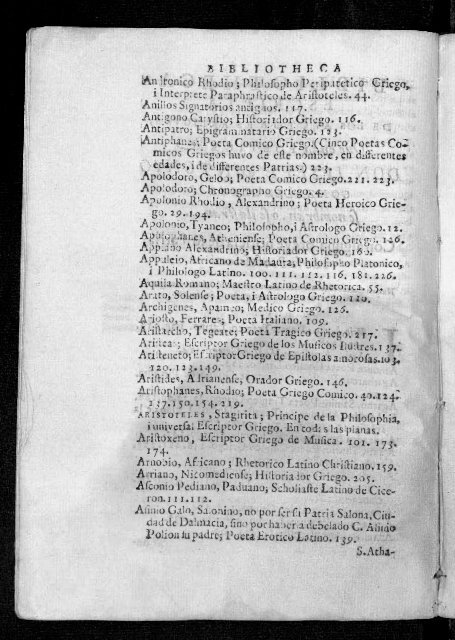 BIBLIOTHECA
Andronico Rhodio; Philosopho Peripatetico Griego,
i Interprete Paraphrastico de Aristoteles. 44.
Anillos Signatorios antiguos. 117.
Antigono Carystio; Historiador Griego. 116.
Antipatro; Epigrammatario Griego. 123.
Antiphanes; Poeta Comico Griego. (Cinco Poetas Co-
micos Griegos huvo de este nombre, en diferentes
edades, i de diferentes Patrias.) 223.
Apolodoro, Geloo; Poeta Comico Griego. 221. 223.
Apolodoro; Chronographo Griego. 4.
Apolonio Rhodio, Alexandrino; Poeta Heroico Grie-
go. 29. 194.
Apolonio, Tyaneo; Philosopho, i Astrologo Griego. 12.
Apolophanes, Atheniense; Poeta Comico Griego.
Appiano Alexandrino; Historiador Griego.
Appuleio, Africano de Madaura, Philosopho Platonico,
i Philologo Latino. 100. 111. 112. 116. 181. 226.
Aquila Romano; Maestro Latino de Rhetorica. 55.
Arato, Solense; Poeta, i Astrologo Griego. 120.
Archigenes, Apameo; Medico Griego. 126.
Ariosto, Ferrares; Poeta Italiano. 109.
Aristarcho, Tegeate; Poeta Tragico Griego. 217.
Aristeas; Escriptor Griego de los Musicos ilustres. 137.
Aristeneto; Escriptor Griego de Epistolas amorosas. 103.
120. 123. 149.
Aristides, Adrianense; Orador Griego. 146.
Aristophanes, Rhodio; Poeta Griego Comico. 40. 124.
137. 150. 154. 219.
ARISTOTELES, Stagirita; Principe de la Philosophia,
i universal Escriptor Griego. En todas las planas.
Aristoxeno, Escriptor Griego de Musica. 101. 173.
174.
Arnobio, Africano; Rhetorico Latino Christiano. 159.
Arriano, Nicomediense; Historiador Griego. 205.
Asconio Pediano, Paduano; Scholiaste Latino de Cice-
ron. 111. 112.
Asinio Galo, Salonino, no por ser su Patria Salona, Ciu-
dad de Dalmacia, sino por haberla debelado C. Asinio
Polion su padre; Poeta Erotico Latino. 139.
S. Atha-